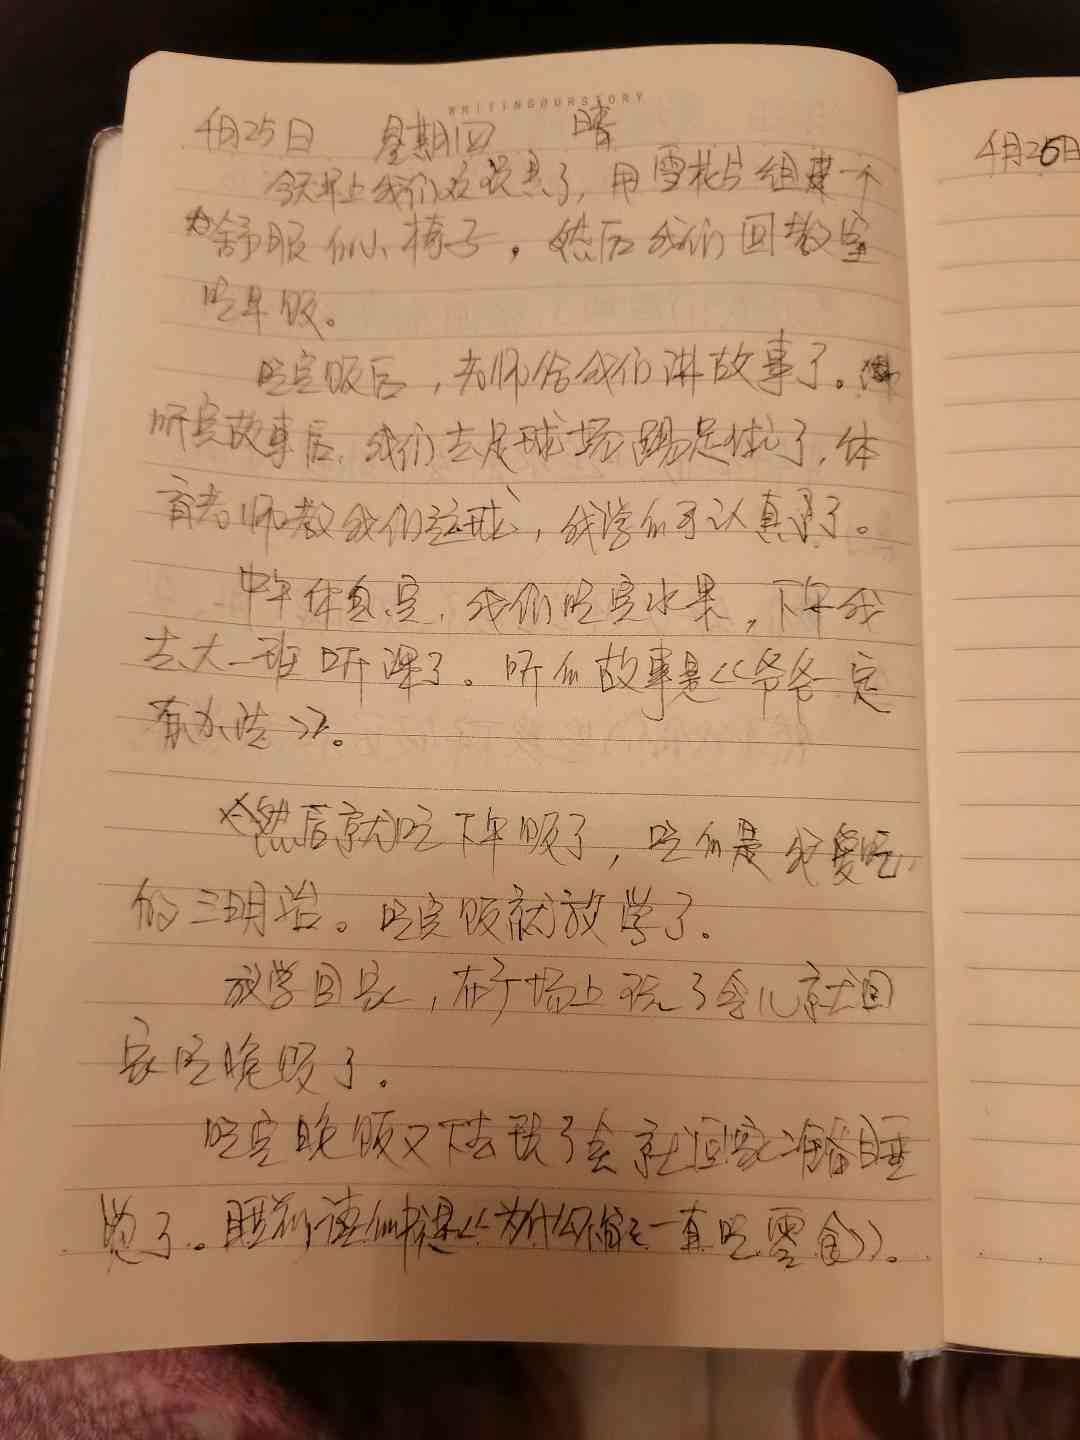 WRITINGOURSTORY
4月25日 星期四 晴
今天早上我们在玩具了，用雪花片组建一个
舒服的小椅子。然后我们回教室
吃午饭。
吃完饭后，老师给我们讲故事了。
听完故事后，我们去足球场踢足球了，体
育老师教我们运球，我学的可认真了。
中午休息完，我们吃完水果，下午我
去大一班听课了。听的故事是《爷爷一定
有办法》。
然后就吃下午饭了，吃的是我爱吃
的三明治。吃完饭就放学了。
放学回家，在广场上玩了会儿就回
家吃晚饭了。
吃完晚饭又下去玩了会就回家准备睡
觉了。睡前读的书是《为什么不能一直吃零食》。
4月26日